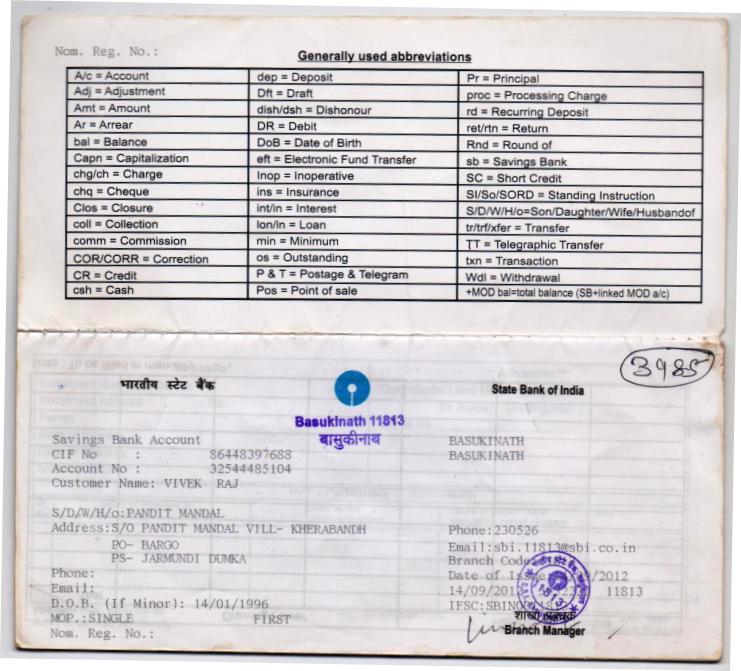 Nom. Reg. No.:
Generally used abbreviations
A/c = Account dep = Deposit Pr = Principal
Adj = Adjustment Dft = Draft proc = Processing Charge
Amt = Amount dish/dsh = Dishonour rd = Recurring Deposit
Ar = Arrear DR = Debit ret/rtn = Return
bal = Balance DoB = Date of Birth Rnd = Round of
Capn = Capitalization eft = Electronic Fund Transfer sb = Savings Bank
chg/ch = Charge Inop = Inoperative SC = Short Credit
chq = Cheque ins = Insurance SI/So/SORD = Standing Instruction
Clos = Closure int/in = Interest S/D/W/H/o=Son/Daughter/Wife/Husbandof
coll = Collection lon/ln = Loan tr/trf/xfer = Transfer
comm = Commission min = Minimum TT = Telegraphic Transfer
COR/CORR = Correction os = Outstanding txn = Transaction
CR = Credit P & T = Postage & Telegram Wdl = Withdrawal
csh = Cash Pos = Point of sale +MOD bal=total balance (SB+linked MOD a/c)
3985
भारतीय स्टेट बैंक State Bank of India
Basukinath 11813
बासुकीनाथ
Savings Bank Account BASUKINATH
CIF No : 86448397688 BASUKINATH
Account No : 32544485104
Customer Name: VIVEK RAJ
S/D/W/H/o:PANDIT MANDAL
Address:S/O PANDIT MANDAL VILL- KHERABANDH Phone:230526
PO- BARGO Email:sbi.11813@sbi.co.in
PS- JARMUNDI DUMKA Branch Code
Phone: Date of Issue /2012
Email: 14/09/201 11813
D.O.B. (If Minor): 14/01/1996 IFSC:SBIN
MOP.:SINGLE FIRST शाखा प्रबंधक
Nom. Reg. No.: Branch Manager